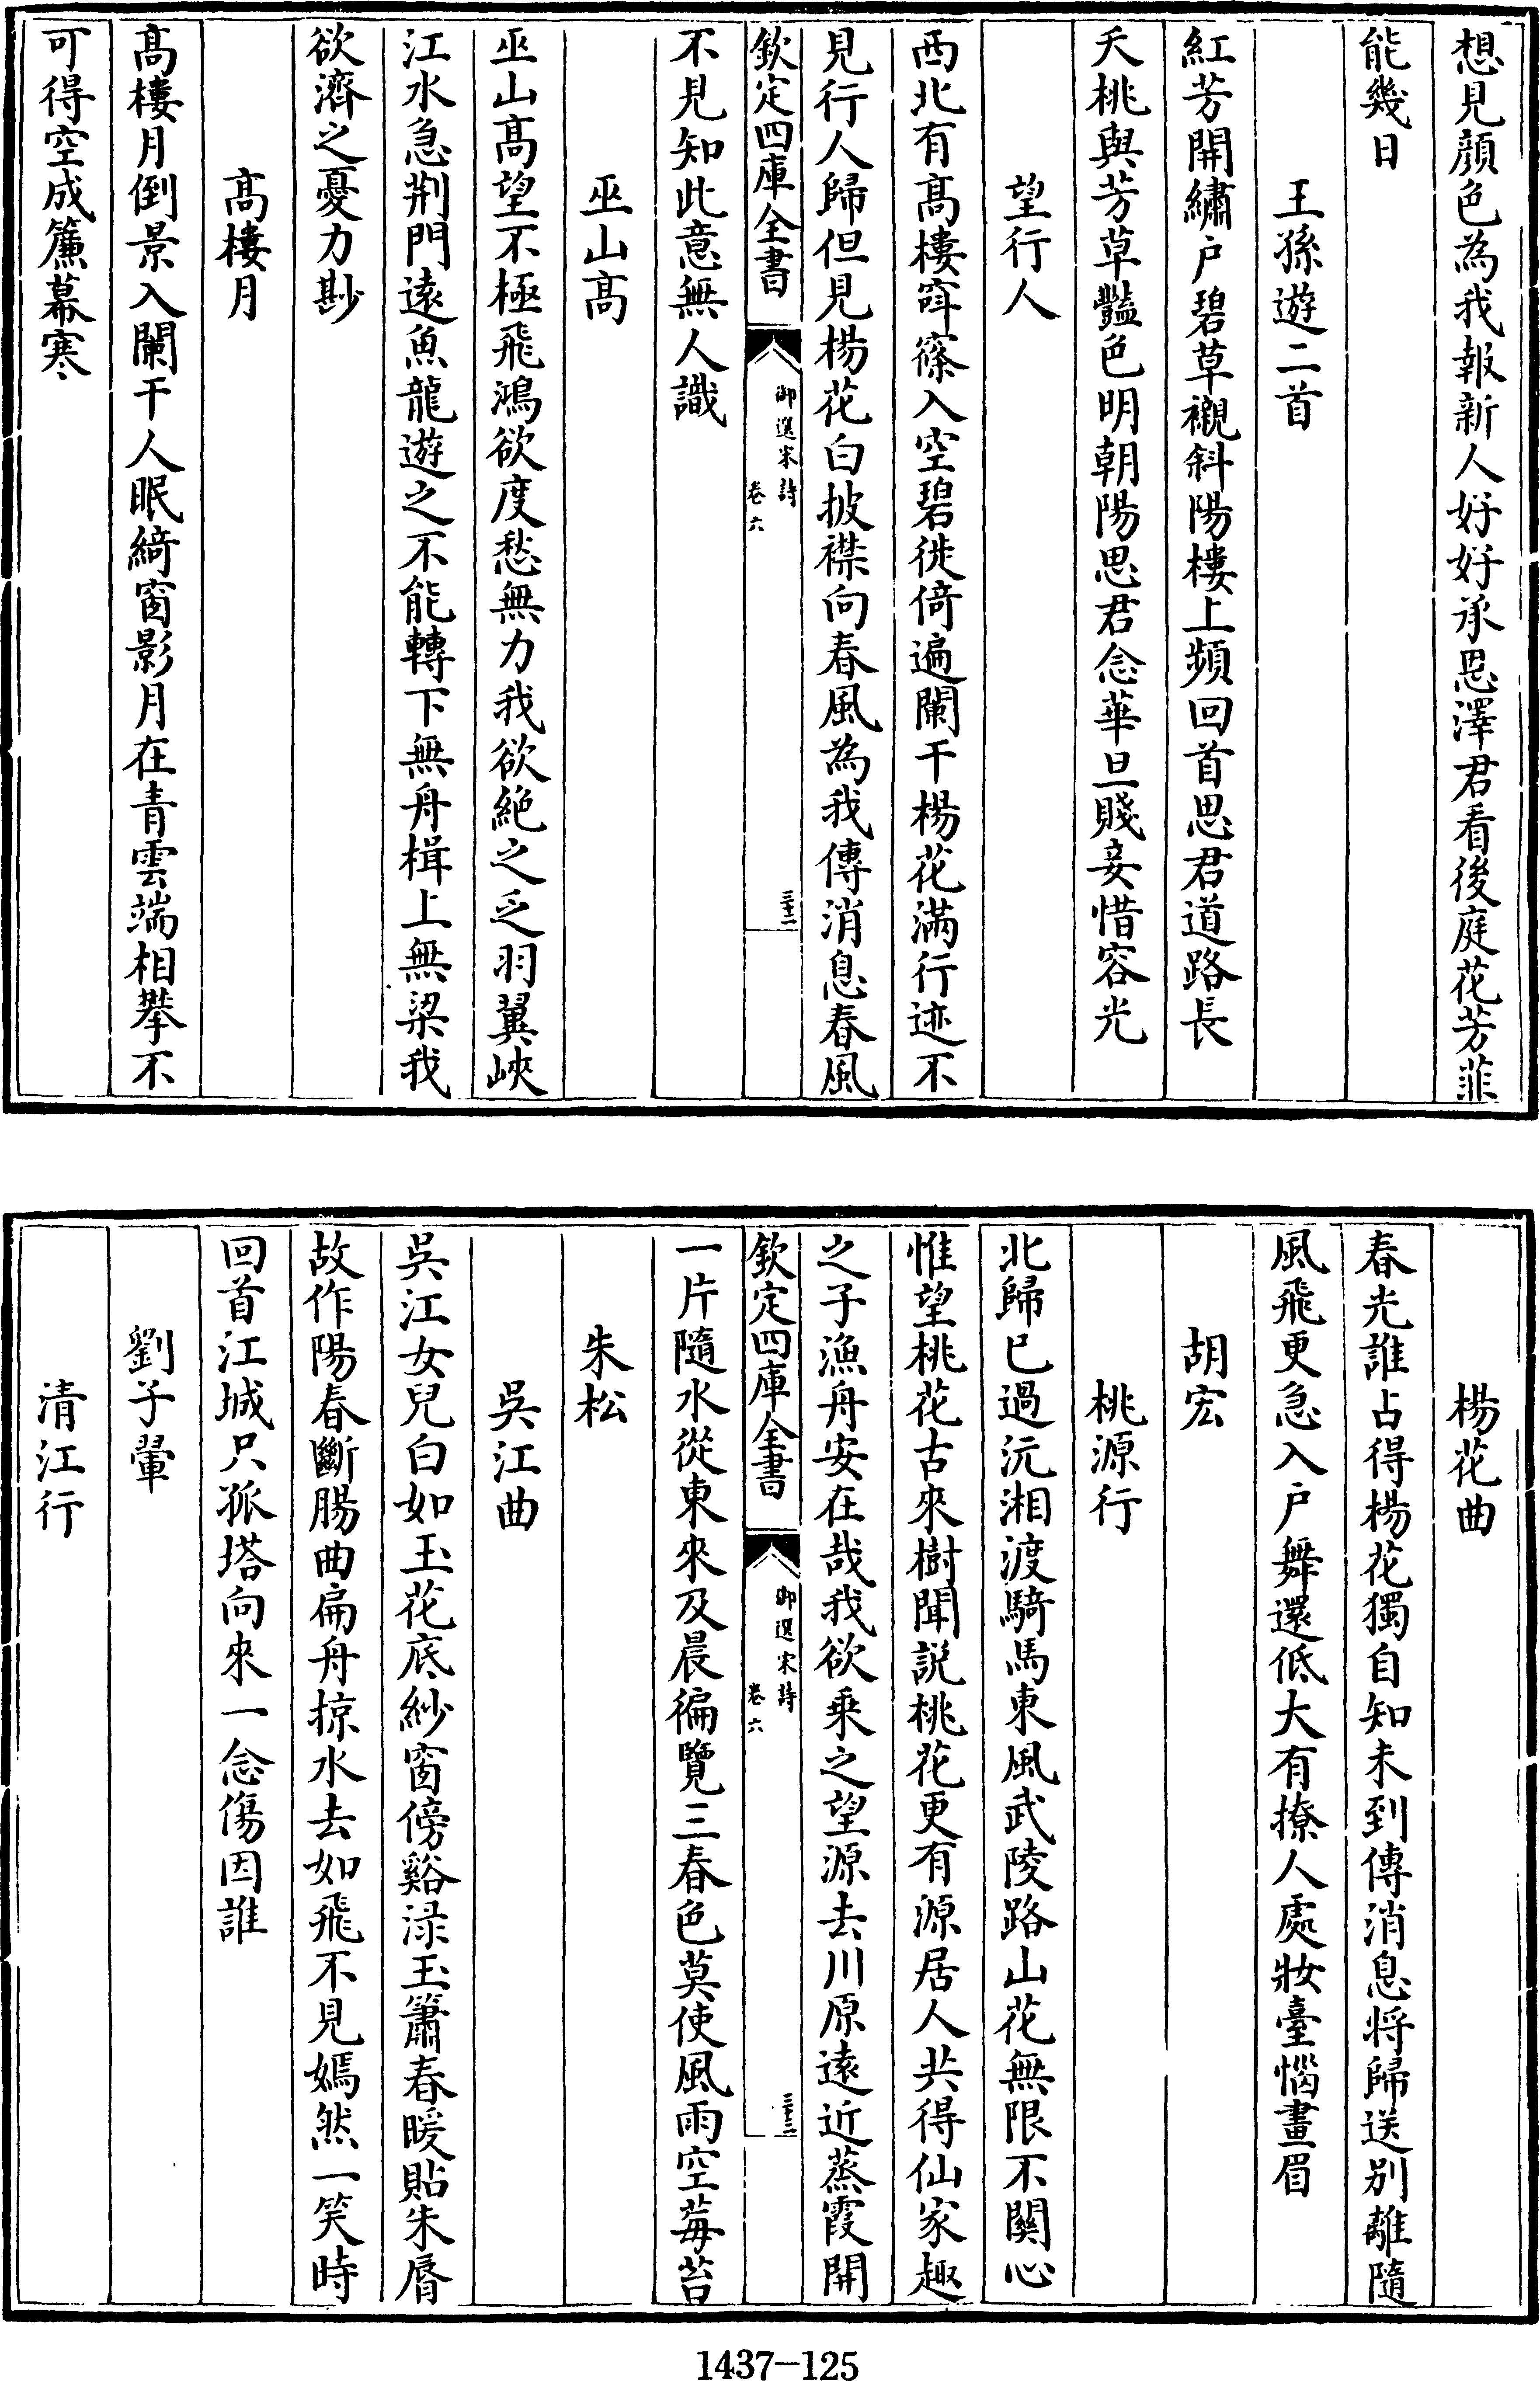 想見顔色為我報新人好好承恩澤君看後庭花芳菲
能幾日
王孫遊二首
紅芳開繡户碧草襯斜陽樓上頻回首思君道路長
夭桃與芳草豔色明朝陽思君念華旦賤妾惜容光
望行人
西北有髙樓窅窱入空碧徙倚遍闌干楊花滿行迹不
見行人歸但見楊花白披襟向春風為我傳消息春風
欽定四庫全書
御選宋詩
卷六
三十二
不見知此意無人識
巫山髙
巫山髙望不極飛鴻欲度愁無力我欲絶之乏羽翼峽
江水急荆門遠魚龍遊之不能轉下無舟楫上無梁我
欲濟之憂力尠
髙樓月
髙樓月倒景入闌干人眠綺窗影月在青雲端相攀不
可得空成簾幕寒
楊花曲
春光誰占得楊花獨自知未到傳消息將歸送别離隨
風飛更急入户舞還低大有撩人處妝臺惱畫眉
胡宏
桃源行
北歸已過沅湘渡騎馬東風武陵路山花無限不關心
惟望桃花古來樹聞説桃花更有源居人共得仙家趣
之子漁舟安在哉我欲乗之望源去川原逺近蒸霞開
欽定四庫全書
御選宋詩
卷六
三十三
一片隨水從東來及晨徧覽三春色莫使風雨空莓苔
朱松
吳江曲
吳江女兒白如玉花底紗窗傍谿渌玉簫春暖貼朱脣
故作陽春斷腸曲扁舟掠水去如飛不見嫣然一笑時
回首江城只孤塔向來一念傷因誰
劉子翬
清江行
1437—125